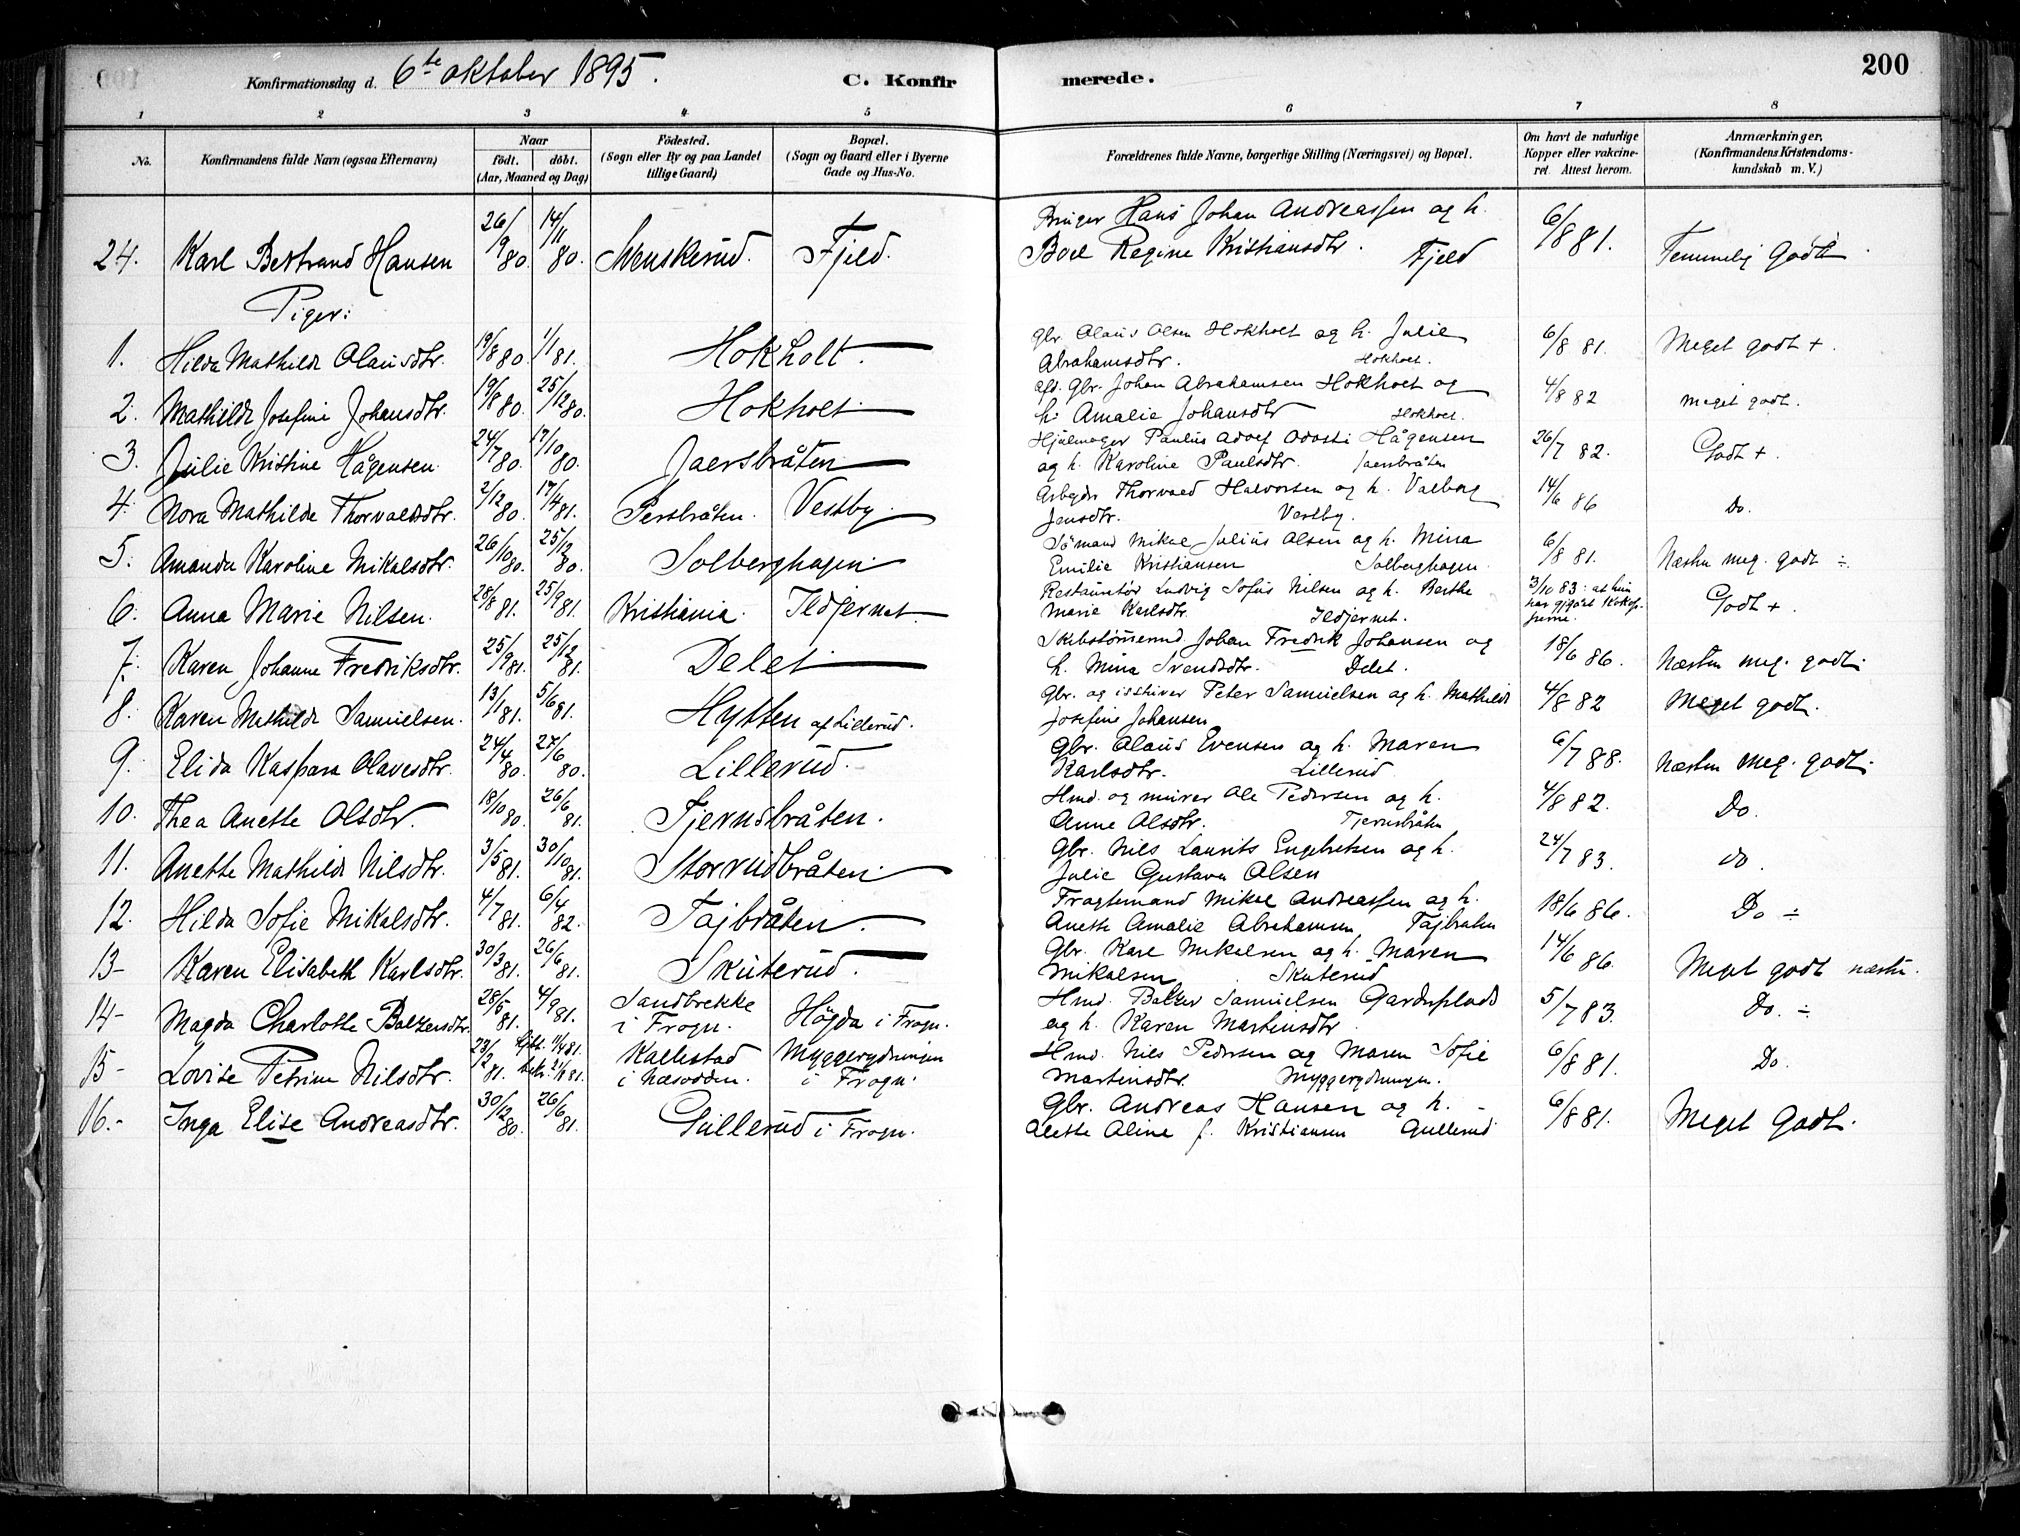 Konfirmationsdag d. 6te oktober 1895. C. Konfirmerede. 200
1 2 3 4 5 6 7 8
No. Konfirmandens fulde Navn (ogsaa Efternavn) Naar födt. döbt. (Aar, Maaned og Dag) Födested. (Sogn eller By og paa Landet tillige Gaard) Bopæl. (Sogn og Gaard eller i Byerne Gade og Hus-No. Forældrenes fulde Navne, borgerlige Stilling (Næringsvei) og Bopæl. Om havt de naturlige Kopper eller vakcineret. Attest herom. Anmærkninger. (Konfirmandens Kristendomskundskab m. V.)
24. Karl Bertrand Hansen 26/9 80. 14/11 80. Svenskerud. Fjeld. Bruger Hans Johan Andreassen og h.
Boel Regine Kristiansdtr. Fjeld 6/8 81. Temmelig Godt
Piger:
1. Hilda Mathilde Olausdtr. 19/8 80. 1/1 81. Hokholt. Gbr. Olaus Olsen Hokholt og h. Julie
Abrahamsdtr. Hokholt. 6/8 81. Meget godt +.
2. Mathilde Josefine Johansdtr. 19/8 80. 25/12 80. Hokholt afd. Gbr. Johan Abrahamsen Hokholt og
h. Amalie Johansdtr Hokholt. 4/8 82 meget godt.
3. Julie Kristine Hågensen. 24/7 80. 17/10 80. Jaersbråten Hjulmager Paulus Adolf Hågensen
og h. Karoline Paulsdtr. Jaersbråten 26/7 82. Godt +.
4. Nora Mathilde Thorvaldsdtr. 2/12 80. 17/4 81. Persbråten. Vestby. Arbgdr Thorvald Halvorsen og h. Valborg
Jensdtr. Vestby. 14/6 86 Do.
5. Amanda Karoline Mikalsdtr. 26/10 80. 25/12 80. Solberghagen Sömand Mikal Julius Olsen og h. Mina
Emilie Kristiansen Solberghagen. 6/8 81. Næsten meg. godt ÷.
6. Anna Marie Nilsen. 28/8 81. 25/9 81. Kristiania. Ildjernet. Restauratör Ludvig Sofus Nilsen og h. Berthe
Marie Karlsdtr. Ildjernet. 3/10 83: at hun
har Godt +.
7. Karen Johanne Fredriksdtr. 25/9 81. 25/12 81. Delet Skibstömmermd. Johan Fredrik Johansen og
h. Mina Svendsdtr. Delet. 18/6 86. Næsten meg. godt.
8. Karen Mathilde Samuelsen. 13/1 81. 5/6 81. Hytten af Lillerud. Gbr. og isstuver Peter Samuelsen og h. Mathilde
Josefine Johansen 4/8 82 Meget godt.
9. Elida Kaspara Olavesdtr. 24/4 80. 27/6 80. Lillerud. Gbr. Olaus Evensen og h. Maren
Karlsdtr. Lillerud 6/7 88. Næsten meg. godt.
10. Thea Anette Olsdtr. 18/10 80. 26/6 81. Tjernsbråten. Hmd. og murer Ole Pedersen og h.
Anne Olsdtr. Tjernsbråten 4/8 82. Do.
11. Anette Mathilde Nilsdtr. 3/5 81. 30/10 81. Storrudbråten. Gbr. Nils Laurits Engebretsen og h.
Julie Gustava Olsen 24/7 83. do.
12. Hilda Sofie Mikalsdtr. 4/7 81. 6/4 82. Tajbråten. Fragtemand Mikal Andreassen og h.
Anette Amalie Abrahamsen Tajbråten 18/6 86. Do ÷
13- Karen Elisabeth Karlsdtr. 30/3 81. 26/6 81. Skuterud. Gbr. Karl Mikalsen og h. Maren
Mikalsen Skuterud 14/6 86. Meget godt næsten.
14- Magda Charlotte Balzersdtr. 28/5 81. 4/9 81. Sandbrekke
i Frogn. Högda i Frogn. Hmd. Balzer Samuelsen Gardersplads
og h. Karen Martinsdtr. 5/7 83. Do. ÷
15- Lovise Petrine Nilsdtr. 23/2 81. Kallestad
i Næsodden. Myggerydningen
i Frogn. Hmd. Nils Pedersen og Maren Sofie
Martinsdtr. Myggerydningen. 6/8 81. Do.
16.- Inga Elise Andreasdtr. 30/12 80. 26/6 81. Gullerud i Frogn. Gbr. Andreas Hansen og h.
Alette Aline f. Kristiansen Gullerud 6/8 81. Meget Godt.